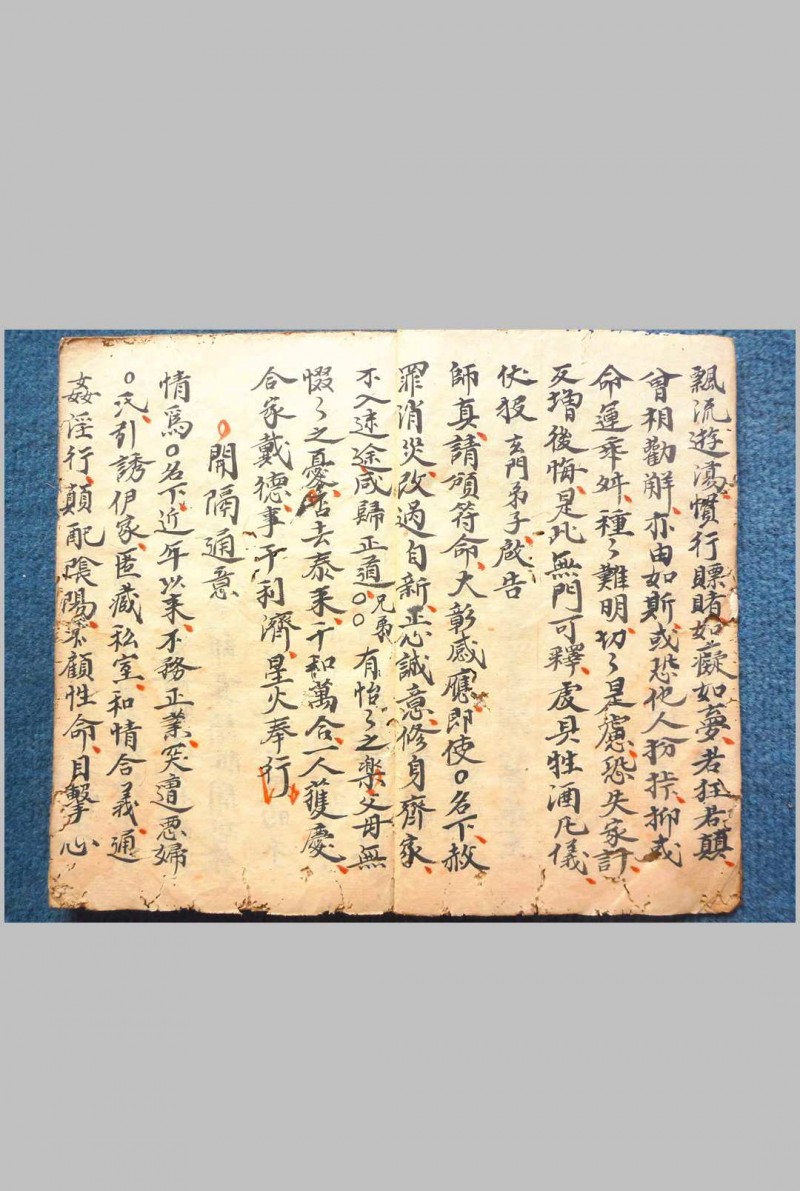 飄流逰蕩慣行賭如癡如夢若狂若顛
曾相勸觧亦由如斯或恐他人扮挨抑或
命運乖舛種〻難明切〻是慮恐失家計
反增後悔是凡無門可釋處具牲酒凡儀
伏投玄門弟子啟告
師真請頒符命大彰感應即使○名下赦
罪消災改過自新正心誠意修身齊家
不入迷途咸歸正道○○兄弟有怡〻之樂父母無
惙〻之憂否去泰来千和萬合一人獲慶
合家戴德事干利濟星火奉行
○開隔通意
情為○名下近年以来不務正業突遭惡婦
○氏引誘伊家匿藏私室和情合義通
姦淫行顛配陰陽不顧性命目擊心